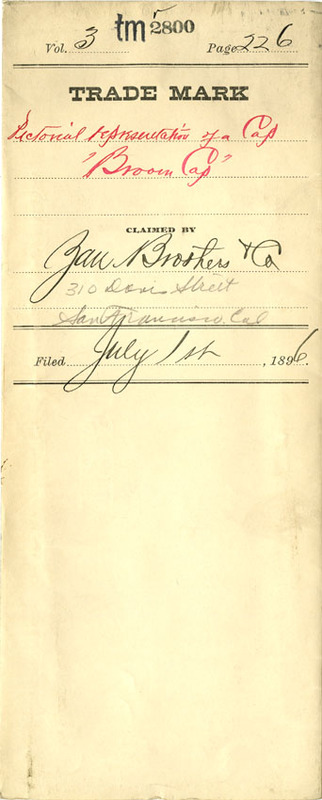 tm 2800
Vol. 3 Page 226
TRADE MARK
Pictorial representation of a Cap
"Broom Cap"
CLAIMED BY
Zan Brothers & Co
310 Davis Street
San Francisco Cal
Filed July 1st, 1896.